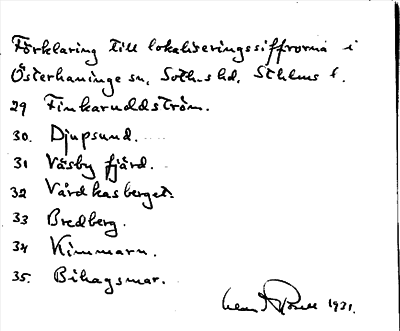 Förklaring till lokaliseringssiffrorna i
Österhaninge sn, Soth-s hd, Sthlms l.
29 Finkaruddström.
30. Djupsund.
31 Väsby fjärd.
32 Vårdkasberget.
33 Bredberg.
34 Kimmarn.
35. Bihagsmar.
1931.